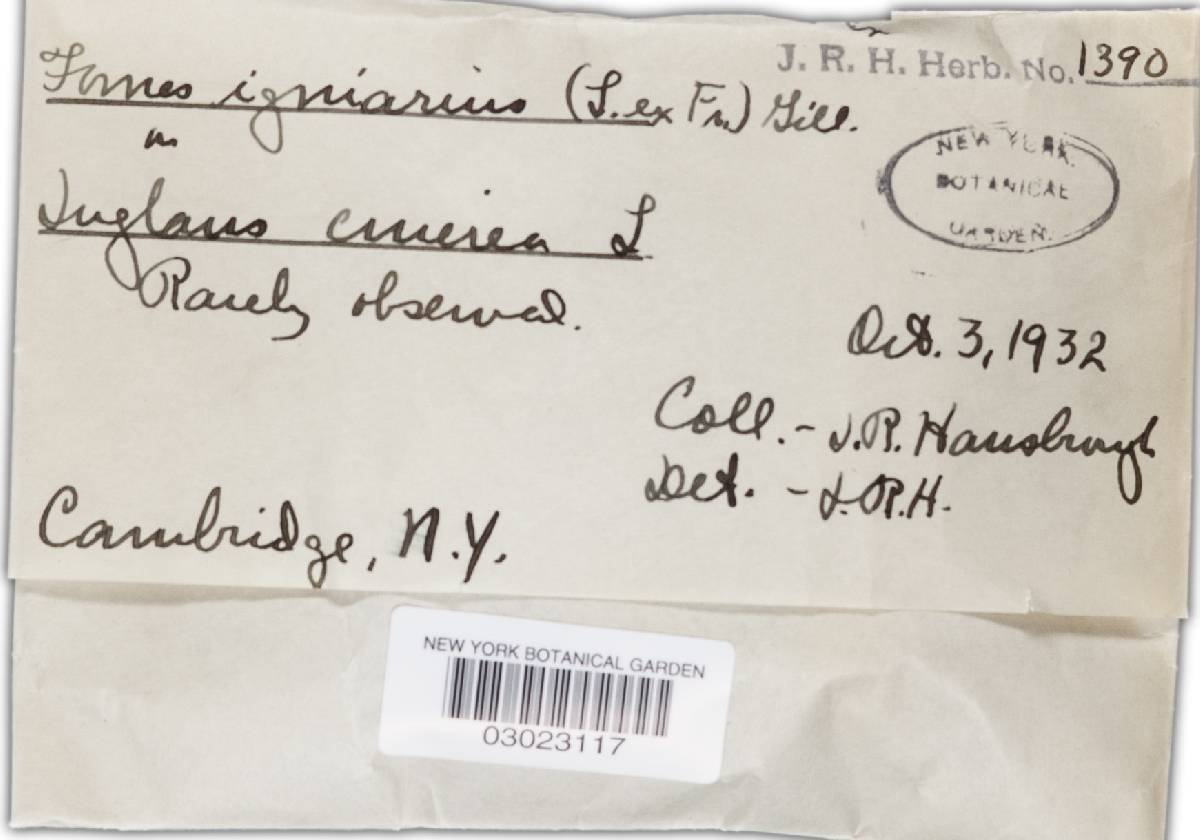 J. R. H. Herb. No. 1390
Fomes igniarius (L. ex Fr.) Gill.
on
Juglans cinerea L
Rarely observed.
NEW YORK
BOTANICAL
GARDEN.
Oct. 3, 1932
Coll. - J.R. Hansbrough
Det. - J.R.H.
Cambridge, N.Y.
NEW YORK BOTANICAL GARDEN
03023117